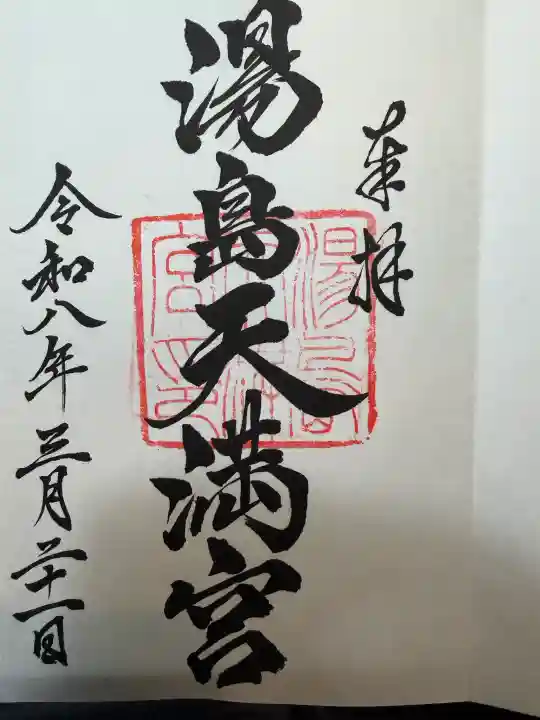 奉拝
湯島天満宮
令和八年三月二十一日